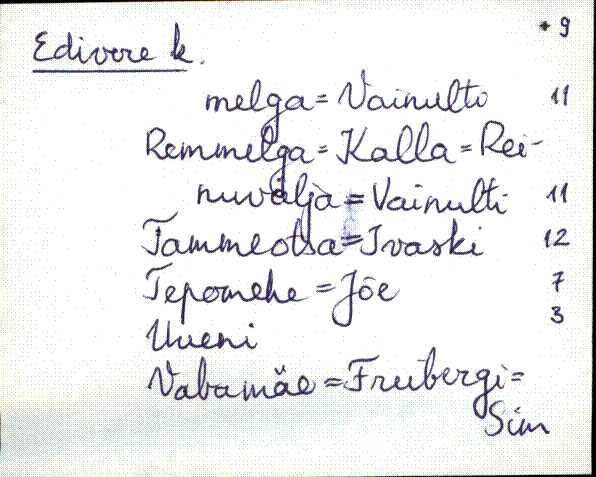 + 9
Edivere k.
melga = Vainulto 11
Remmelga = Kalla = Rei-
nuvälja = Vainulti 11
Tammeotsa = Ivaski 12
Tepomehe = Jõe 7
Uueni 3
Vabamäe = Freibergi =
Sim